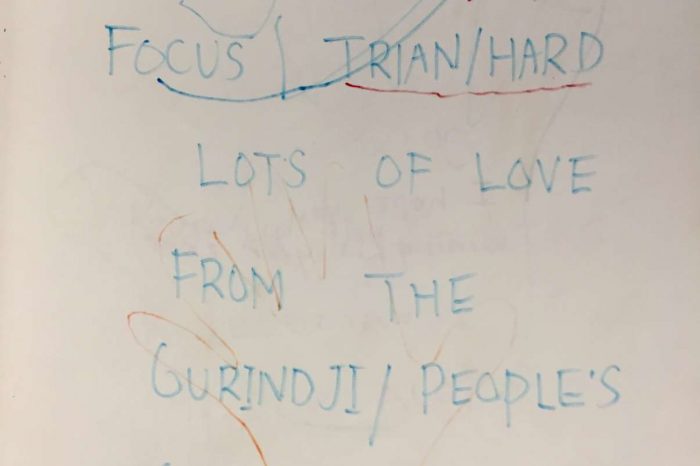 FOCUS / TRIAN/HARD
LOTS OF LOVE
FROM THE
GURINDJI/ PEOPLE'S